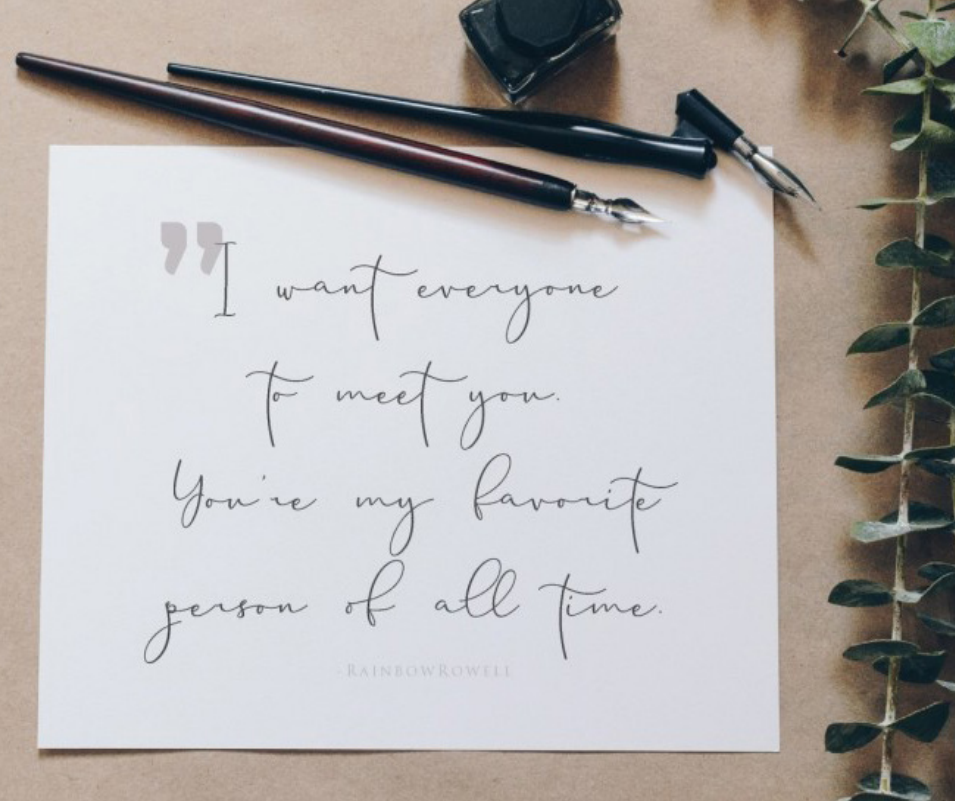 ”I want everyone
to meet you.
You're my favorite
person of all time.
-RAINBOWROWELL